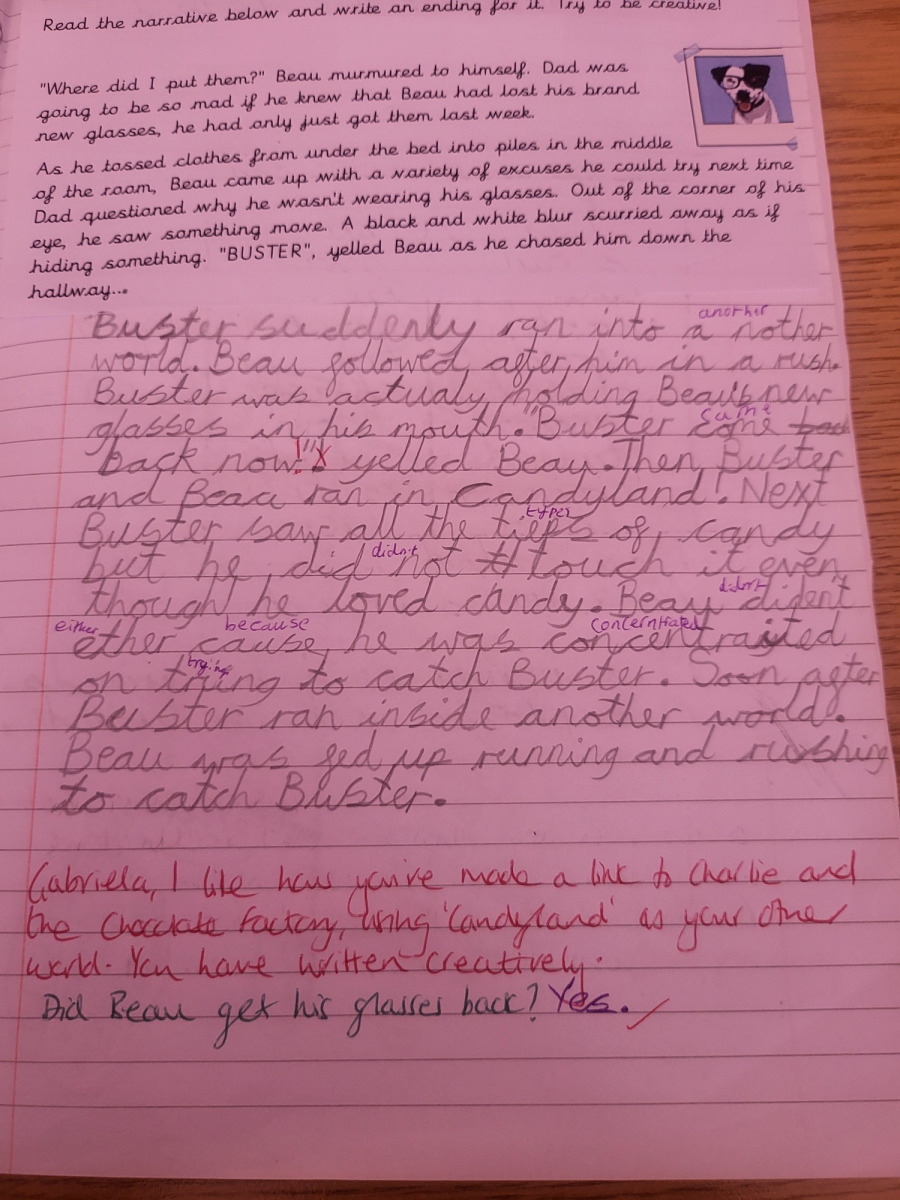 Read the narrative below and write an ending for it. Try to be creative!
"Where did I put them?" Beau murmured to himself. Dad was
going to be so mad if he knew that Beau had lost his brand
new glasses, he had only just got them last week.
As he tossed clothes from under the bed into piles in the middle
of the room, Beau came up with a variety of excuses he could try next time
Dad questioned why he wasn't wearing his glasses. Out of the corner of his
eye, he saw something move. A black and white blur scurried away as if
hiding something. "BUSTER", yelled Beau as he chased him down the
hallway...
another
Buster suddenly ran into a nother
world. Beau followed after him in a rush.
Buster was actualy holding Beau's new
came
glasses in his mouth. "Buster come
back now!" yelled Beau. Then Buster
and Beau ran in Candyland! Next
types
Buster saw all the of candy
didn't
but he did not touch it even
didn't
though he loved candy. Beau dident
either because concerntrated
ether cause he was concentraited
trying
on trying to catch Buster. Soon after
Buster ran inside another world.
Beau was fed up running and rushing
to catch Buster.
Gabriela, I like how you've made a link to Charlie and
the Chocolate Factory, using 'Candyland' as your other
world. You have written creatively.
Did Beau get his glasses back? Yes.